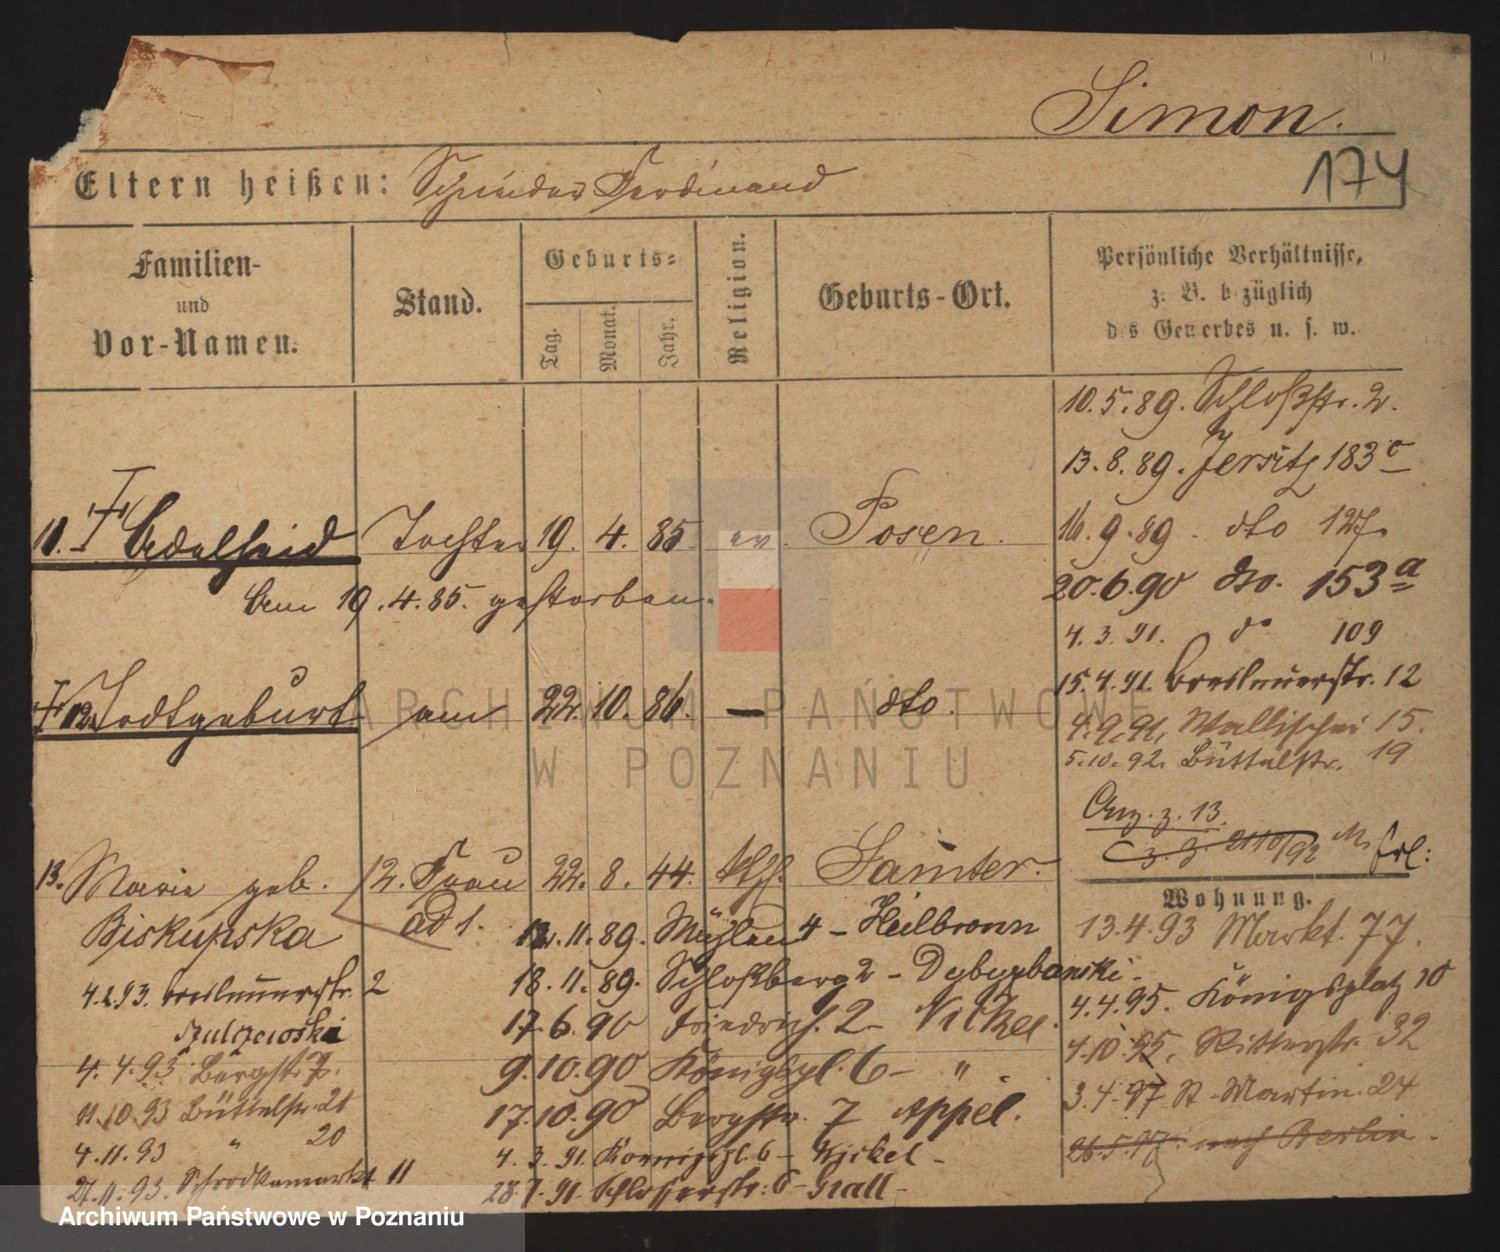 Simon.
174
Eltern heißen: Ferdinand
Familien- und Vor-Namen.
Stand.
Geburts-
Tag. Monat. Jahr.
Religion.
Geburts-Ort.
Persönliche Verhältnisse, z. B. bezüglich des Gewerbes u. s. w.
10.5.89. Schloßstr. 2.
13.8.89. Jersitz 183c
11. † Adelheid Tochter 19. 4. 85 ev. Posen.
16.9.89. dto 127.
am 19.4.85. gestorben.
20.6.90 dto. 153a
4.3.91. do 109
15.4.91. Breslauerstr. 12
† 12. Todtgeburt am 22. 10. 86. — dto.
4.9.91. Wallischei 15.
5.10.92. Büttelstr. 19
Anz. z. 13.
Erl:
13. Marie geb. 2. Frau 22. 8. 44. kth. Samter.
Biskupska ad 1.
Wohnung.
12.11.89. Mühlen 4 – Heilbronn
13.4.93 Markt. 77.
4.2.93. Breslauerstr. 2
18.11.89. Schloßberg 2 –
4.4.95. Königsplatz 10
Szulczewski
17.6.90 Friedrich. 2 – Nickel.
4.10.95. Ritterstr. 32
4.4.93 Bergstr. 7.
9.10.90 Königspl. 6 – "
3.4.97 St. Martin. 24
11.10.93 Büttelstr. 21
17.10.90 Bergstr. 7 Appel.
26.5.97. nach Berlin.
4.11.93 " 20
4.3.91. Koenigspl. 6 –
27.11.93. Schrodkamarkt 11
28.7.91. Schlosserstr. 6 –
ARCHIWUM PAŃSTWOWE
W POZNANIU
Archiwum Państwowe w Poznaniu